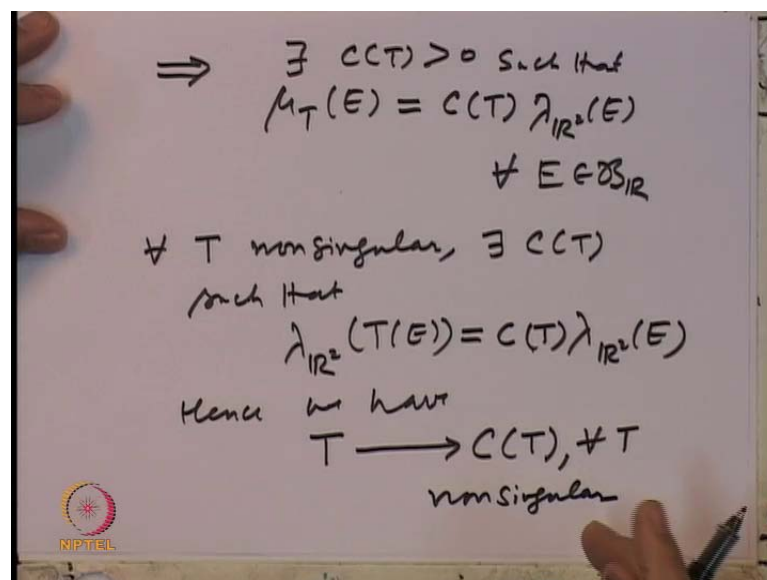 ⇒ ∃ C(T) > 0 such that
μ_T(E) = C(T) λ_ℝ²(E)
∀ E ∈ 𝔅_ℝ
∀ T nonsingular, ∃ C(T)
such that
λ_ℝ²(T(E)) = C(T) λ_ℝ²(E)
Hence we have
T ⟶ C(T), ∀ T
nonsingular
NPTEL